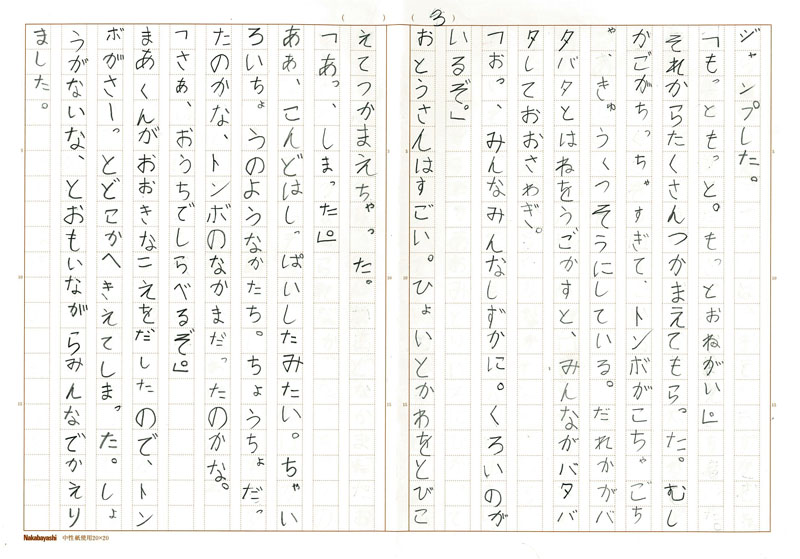 ( 3 )
ジャンプした。
「もっともっと。もっとおねがい。」
それからたくさんつかまえてもらった。むし
かごがちっちゃすぎて、トンボがこちゃごち
ゃ、きゅうくつそうにしている。だれかがバ
タバタとはねをうごかすと、みんながバタバ
タしておおさわぎ。
「おっ、みんなみんなしずかに。くろいのが
いるぞ。」
おとうさんはすごい。ひょいとかわをとびこ
えてつかまえちゃった。
「あっ、しまった。」
あぁ、こんどはしっぱいしたみたい。ちゃい
ろいちょうのようなかたち。ちょうちょだっ
たのかな、トンボのなかまだったのかな。
「さぁ、おうちでしらべるぞ。」
まあくんがおおきなこえをだしたので、トン
ボがさーっとどこかへきえてしまった。しょ
うがないな、とおもいながらみんなでかえり
ました。
5
10
15
5
10
15
Nakabayashi 中性紙使用20×20